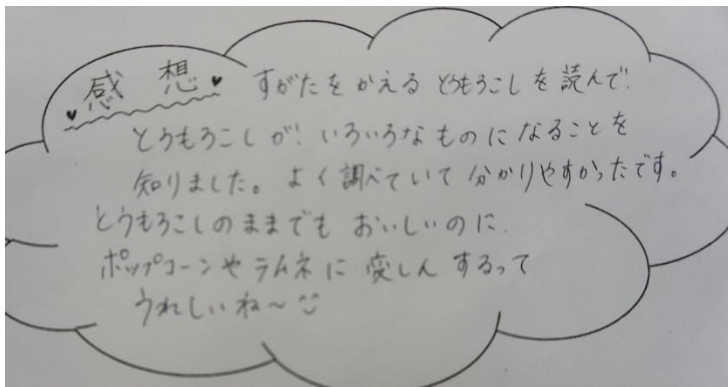 感想 すがたをかえる とうもろこしを読んで
とうもろこしが いろいろなものになることを
知りました。よく調べていて分かりやすかったです。
とうもろこしのままでもおいしいのに、
ポップコーンやラムネに変しんするって
うれしいね〜